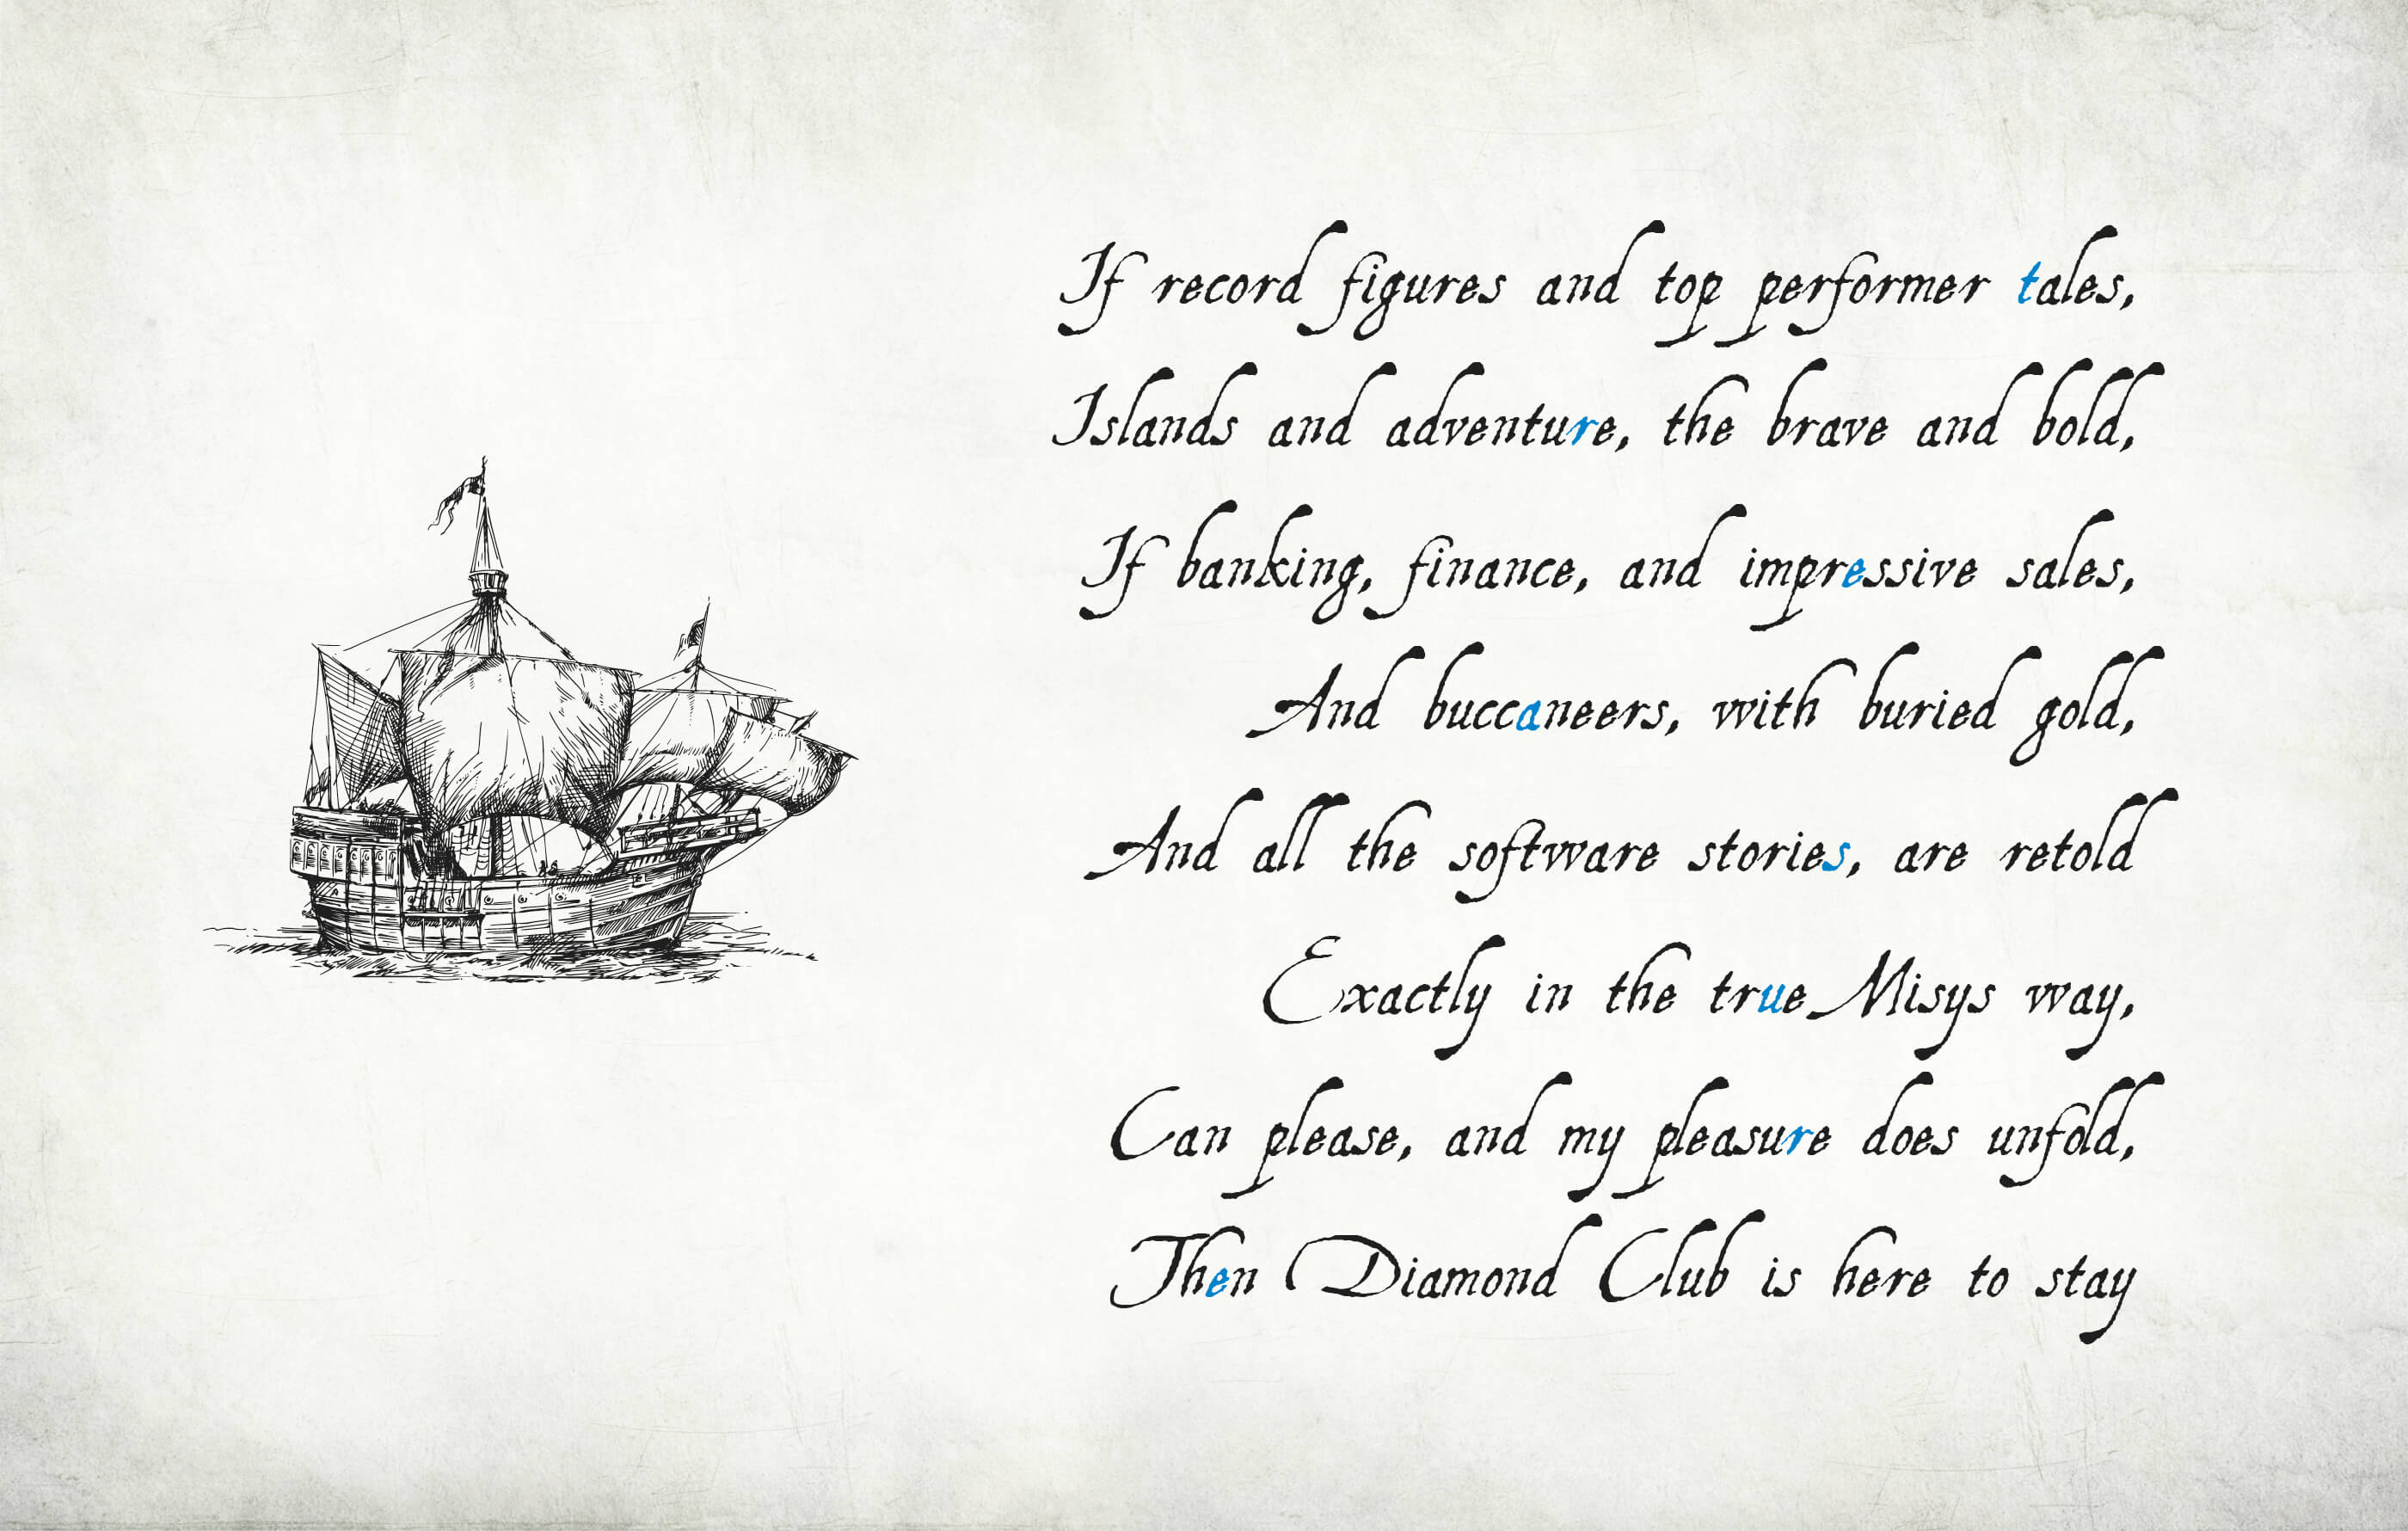 If record figures and top performer tales,
Islands and adventure, the brave and bold,
If banking, finance, and impressive sales,
And buccaneers, with buried gold,
And all the software stories, are retold
Exactly in the true Misys way,
Can please, and my pleasure does unfold,
Then Diamond Club is here to stay